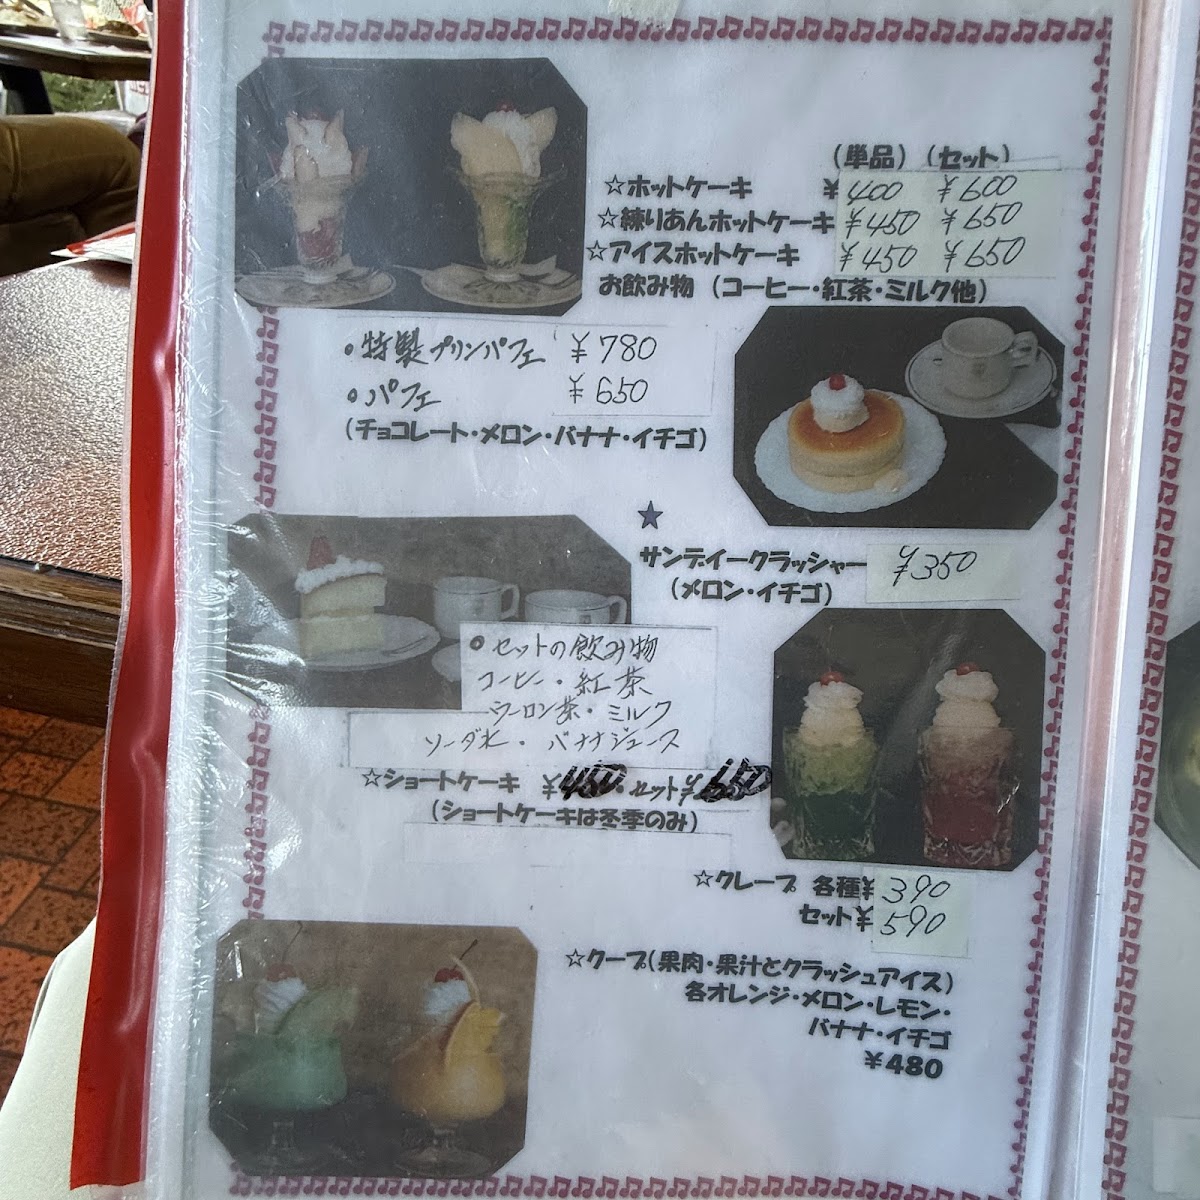 (単品) (セット)
☆ホットケーキ ¥400 ¥600
☆練りあんホットケーキ ¥450 ¥650
☆アイスホットケーキ ¥450 ¥650
お飲み物 (コーヒー・紅茶・ミルク他)
・特製プリンパフェ ¥780
・パフェ ¥650
(チョコレート・メロン・バナナ・イチゴ)
★
サンデイークラッシャー ¥350
(メロン・イチゴ)
・セットの飲み物
コーヒー・紅茶
ウーロン茶・ミルク
ソーダ水・バナナジュース
☆ショートケーキ ¥450・セット¥650
(ショートケーキは冬季のみ)
☆クレープ 各種¥390
セット¥590
☆クープ(果肉・果汁とクラッシュアイス)
各オレンジ・メロン・レモン・
バナナ・イチゴ
¥480